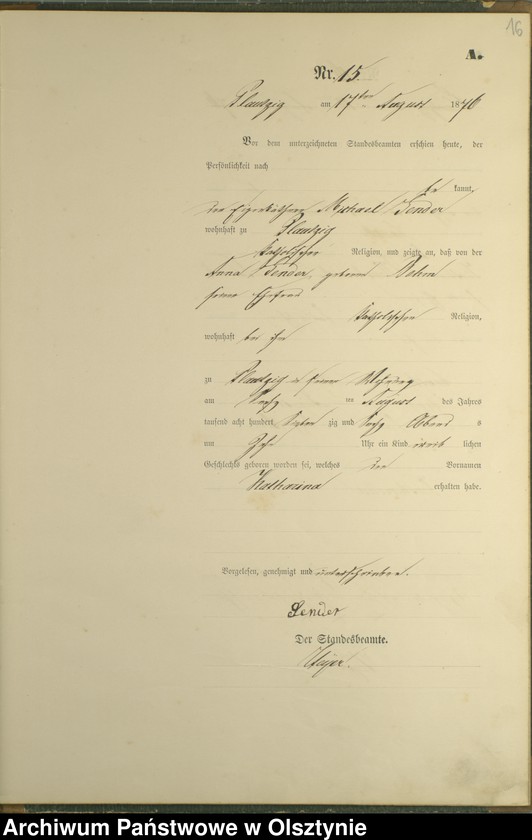 16
A.
Nr. 15.
Plautzig am 17ten August 1876
Vor dem unterzeichneten Standesbeamten erschien heute, der
Persönlichkeit nach
be kannt,
der Eigenkäthner Michael Sender
wohnhaft zu Plautzig
katholischer Religion, und zeigte an, daß von der
Anna Sender, geborene
seiner Ehefrau
katholischer Religion,
wohnhaft bei ihm
zu Plautzig in seiner Wohnung
am des August des Jahres
tausend acht hundert sieben zig und sechs Abend s
um Uhr ein Kind weib lichen
Geschlechts geboren worden sei, welches den Vornamen
Katharina erhalten habe.
Vorgelesen, genehmigt und unterschrieben.
Sender
Der Standesbeamte.
Archiwum Państwowe w Olsztynie